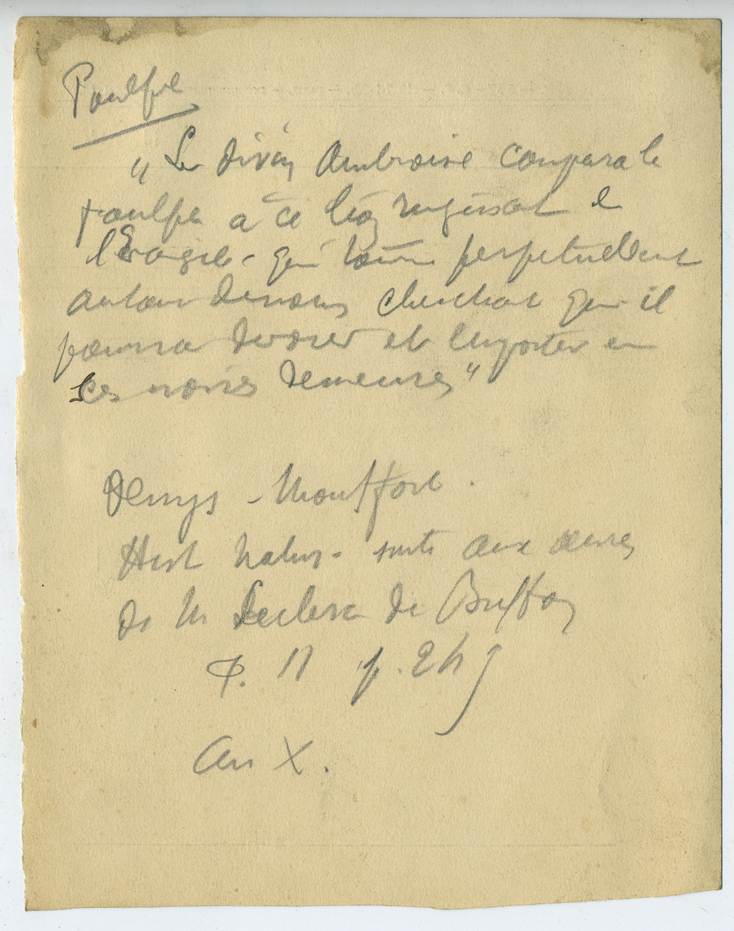 Poulpe
"Le divin Ambroise compara le
poulpe à ce lion rugissant de
l'Evangile - qui tourne perpetuellement
autour de nous cherchant qui il
pourra devorer et emporter en
ses noires demeures"
Denys - Montfort.
Hist natur. suite aux œuvres
de M Leclerc de Buffon
T. II p.
an X.